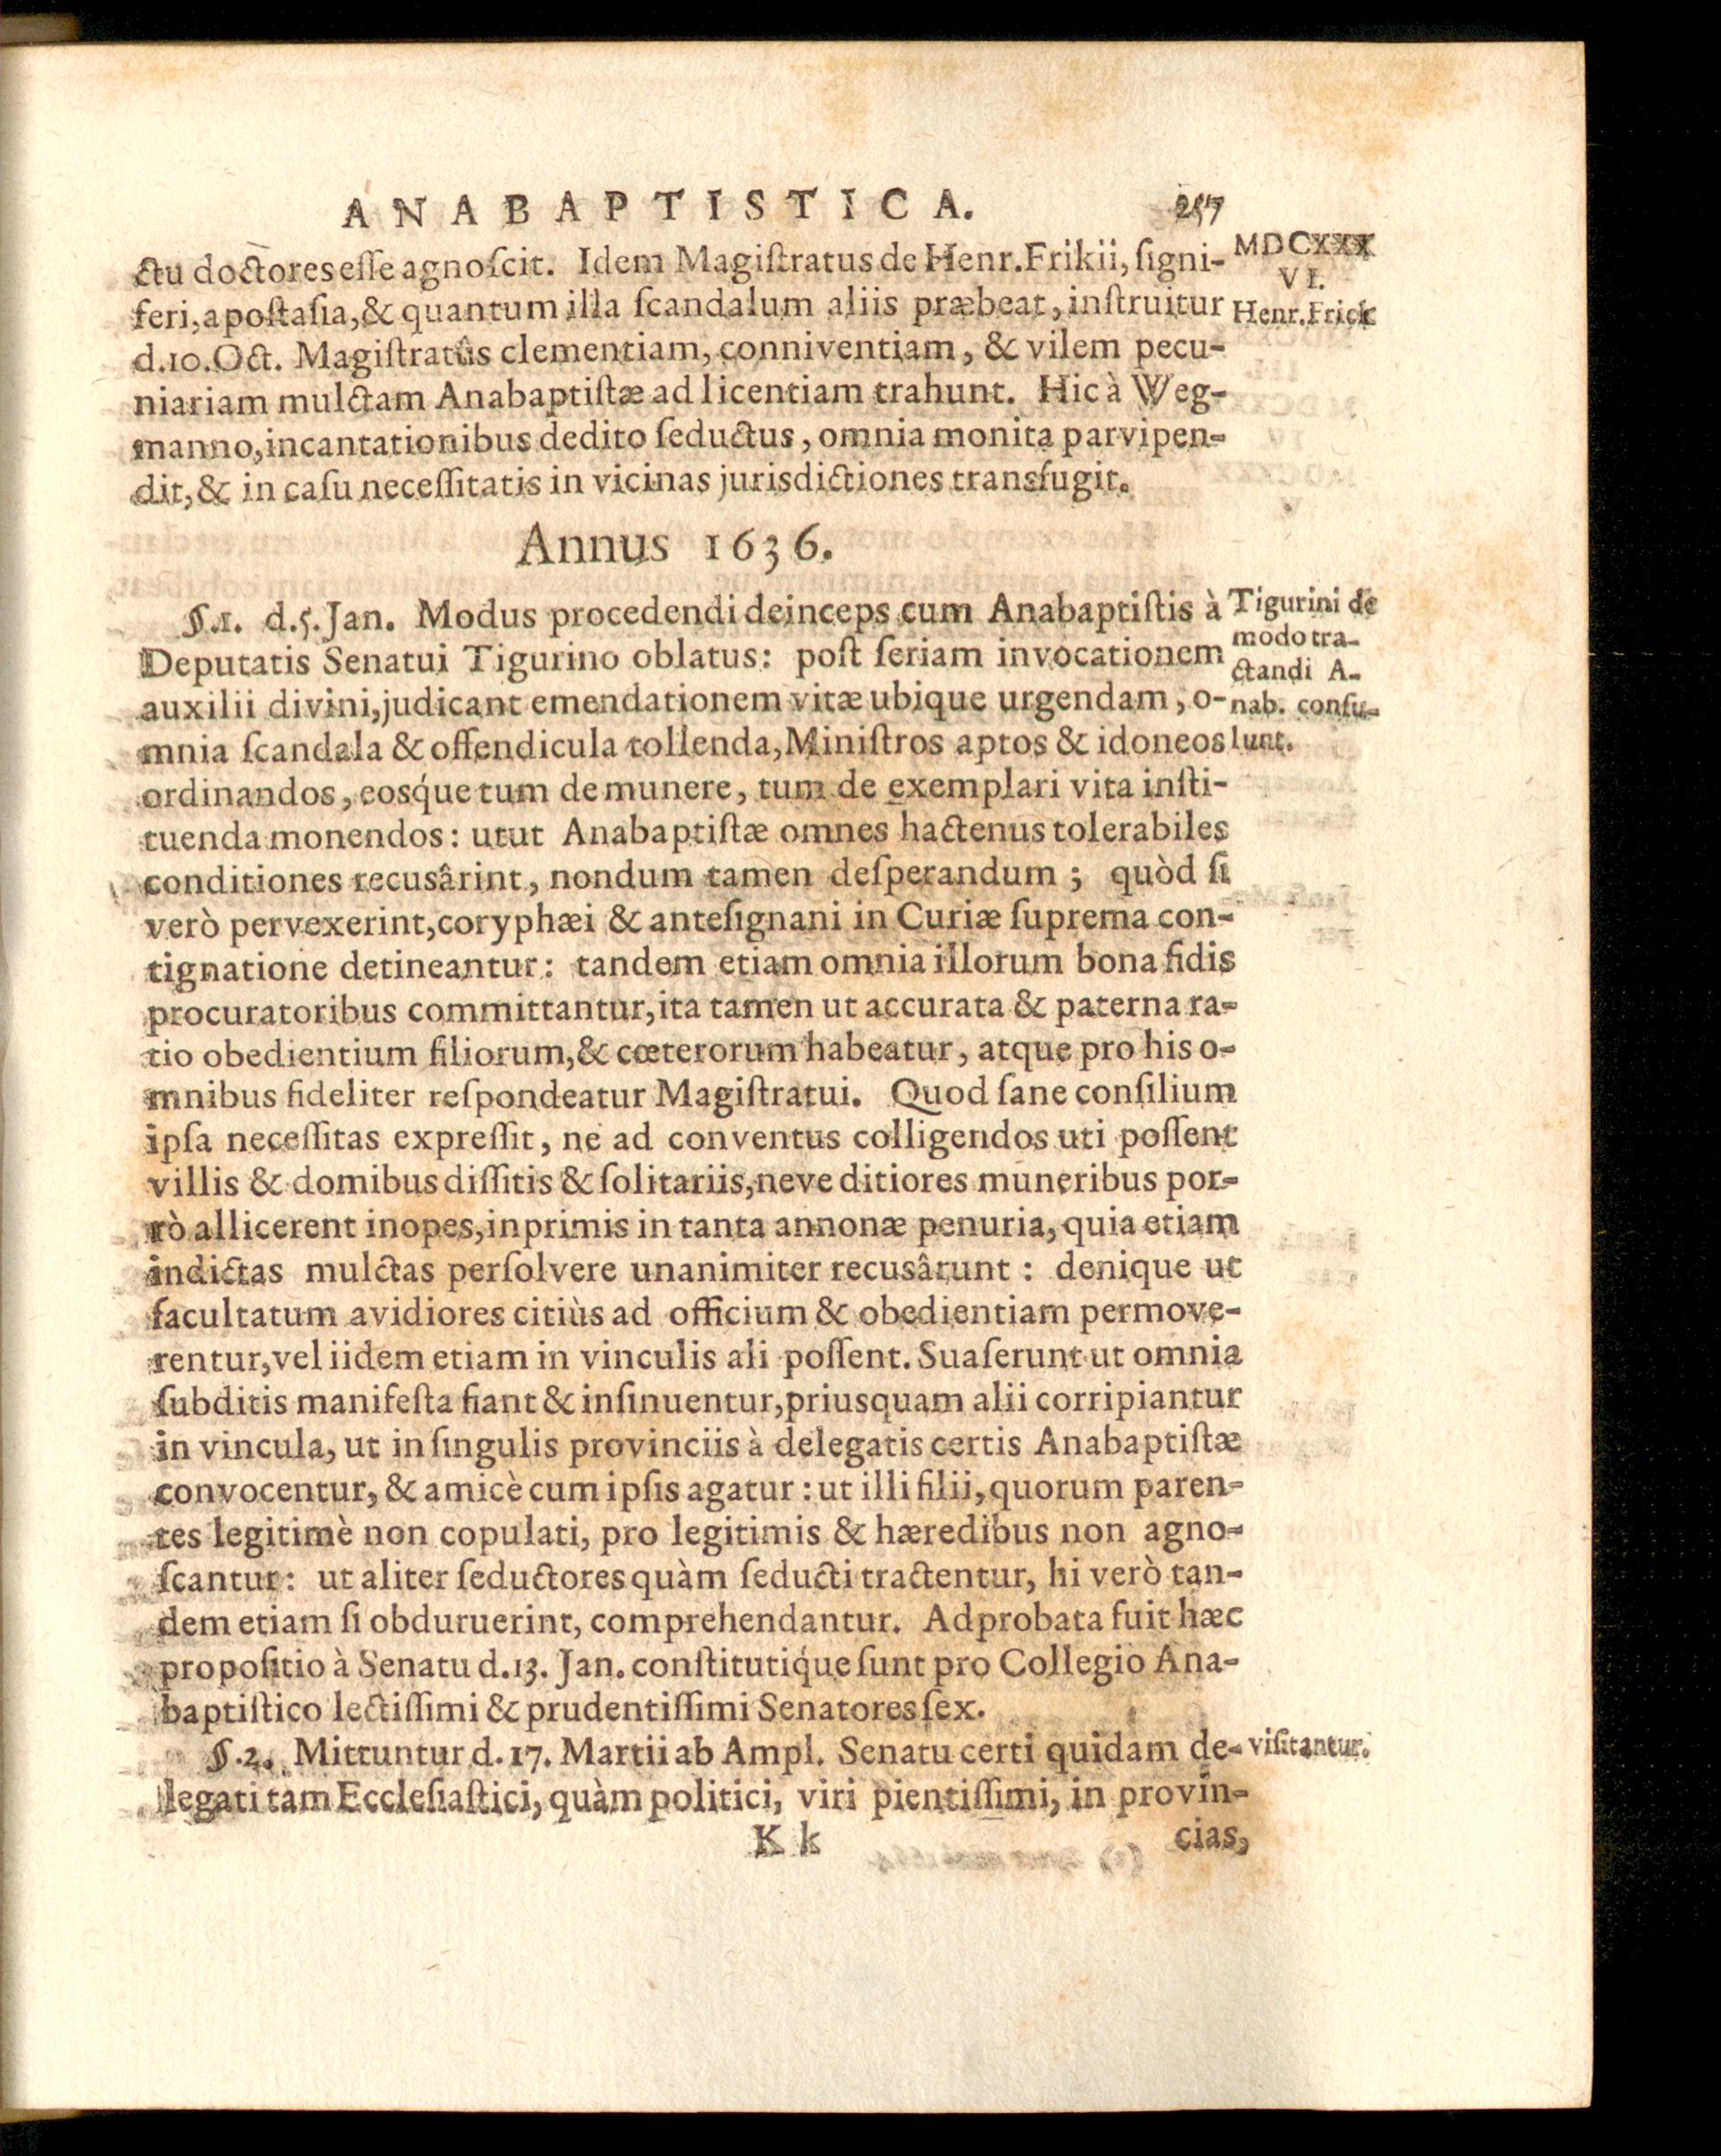 ANABAPTISTICA. 257
ctu doctores esse agnoſcit. Idem Magiſtratus de Henr. Frikii, ſigni-
MDCXXX
VI.
feri, apoſtaſia, & quantum illa ſcandalum aliis præbeat, inſtruitur
Henr. Frick
d. 10. Oct. Magiſtratûs clementiam, conniventiam, & vilem pecu-
niariam mulctam Anabaptiſtæ ad licentiam trahunt. Hic à Weg-
manno, incantationibus dedito ſeductus, omnia monita parvipen-
dit, & in caſu neceſſitatis in vicinas jurisdictiones transfugit.
Annus 1636.
§.1. d.5. Jan. Modus procedendi deinceps cum Anabaptiſtis à
Deputatis Senatui Tigurino oblatus: poſt ſeriam invocationem
auxilii divini, judicant emendationem vitæ ubique urgendam, o-
mnia ſcandala & offendicula tollenda, Miniſtros aptos & idoneos
Tigurini de
modo tra-
ctandi A-
nab. conſu-
lunt.
ordinandos, eosq́ue tum de munere, tum de exemplari vita inſti-
tuenda monendos: utut Anabaptiſtæ omnes hactenus tolerabiles
conditiones recusârint, nondum tamen deſperandum; quòd ſi
verò pervexerint, coryphæi & anteſignani in Curiæ ſuprema con-
tignatione detineantur: tandem etiam omnia illorum bona fidis
procuratoribus committantur, ita tamen ut accurata & paterna ra-
tio obedientium filiorum, & cœterorum habeatur, atque pro his o-
mnibus fideliter reſpondeatur Magiſtratui. Quod ſane conſilium
ipſa neceſſitas expreſſit, ne ad conventus colligendos uti poſſent
villis & domibus diſſitis & ſolitariis, neve ditiores muneribus por-
rò allicerent inopes, inprimis in tanta annonæ penuria, quia etiam
indictas mulctas perſolvere unanimiter recusârunt: denique ut
facultatum avidiores citiùs ad officium & obedientiam permove-
rentur, vel iidem etiam in vinculis ali poſſent. Suaſerunt ut omnia
ſubditis manifeſta fiant & inſinuentur, priusquam alii corripiantur
in vincula, ut in ſingulis provinciis à delegatis certis Anabaptiſtæ
convocentur, & amicè cum ipſis agatur: ut illi filii, quorum paren-
tes legitimè non copulati, pro legitimis & hæredibus non agno-
ſcantur: ut aliter ſeductores quàm ſeducti tractentur, hi verò tan-
dem etiam ſi obduruerint, comprehendantur. Adprobata fuit hæc
propoſitio à Senatu d. 13. Jan. conſtitutiq́ue ſunt pro Collegio Ana-
baptiſtico lectiſſimi & prudentiſſimi Senatores ſex.
§.2. Mittuntur d. 17. Martii ab Ampl. Senatu certi quidam de-
viſitantur.
legati tam Eccleſiaſtici, quàm politici, viri pientiſſimi, in provin-
Kk cias,